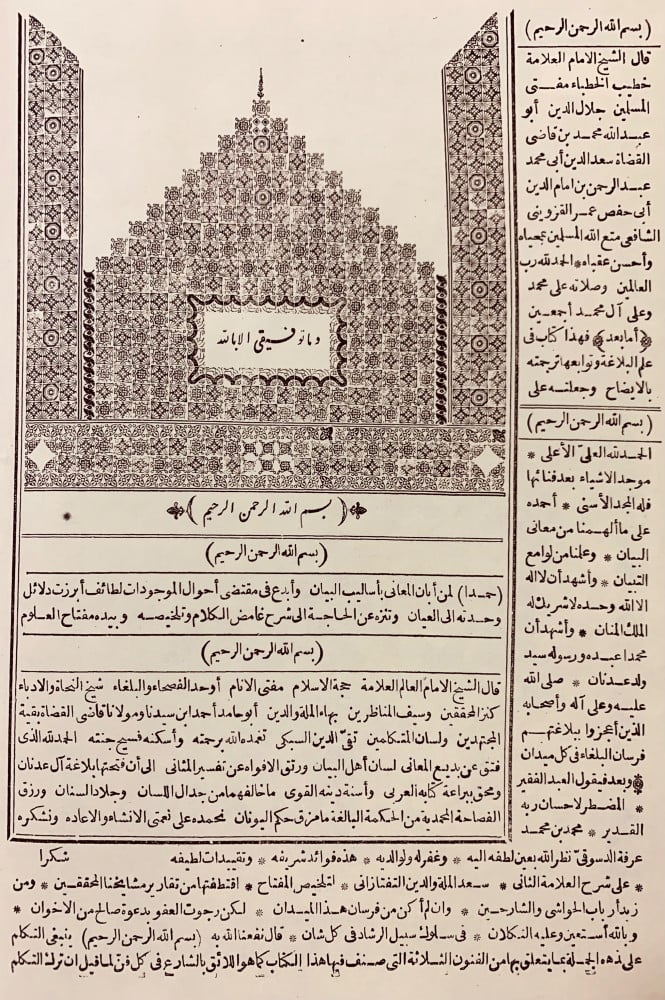 وما توفيقى الا بالله
بسم الله الرحمن الرحيم
(بسم الله الرحمن الرحيم)
(حمدا) لمن أبان المعانى بأساليب البيان وأبدع فى مقتضى أحوال الموجودات لطائف أبرزت دلائل
وحدته الى العيان وتنزه عن الحاجة الى شرح غامض الكلام وتلخيصه وبيده مفتاح العلوم
(بسم الله الرحمن الرحيم)
قال الشيخ الامام العالم العلامة حجة الاسلام مفتى الانام أوحد الفصحاء والبلغاء شيخ النحاة والادباء
كنز المحققين وسيف المناظرين بهاء الملة والدين أبو حامد أحمد ابن سيدنا ومولانا قاضى القضاة بقية
المجتهدين ولسان المتكلمين تقى الدين السبكى تغمده الله برحمته وأسكنه فسيح جنته الحمد لله الذى
فتق عن بديع المعانى لسان أهل البيان ورتق الافواه عن تفسير المثانى الى أن فتحتها بلاغة آل عدنان
ومحق ببراعة كتابه العربى وأسنة دينه القوى ما خالفهما من جدال اللسان وجلاد السنان ورزق
الفصاحة المحمدية من الحكمة البالغة ما مزق حكم اليونان نحمده على نعمتى الانشاء والاعاده ونشكره
(بسم الله الرحمن الرحيم)
قال الشيخ الامام العلامة
خطيب الخطباء مفتى
المسلمين جلال الدين أبو
عبد الله محمد بن قاضى
القضاة سعد الدين أبى محمد
عبد الرحمن بن امام الدين
أبى حفص عمر القزوينى
الشافعى متع الله المسلمين بمحياه
وأحسن عقباه * الحمد لله رب
العالمين وصلاته على محمد
وعلى آل محمد أجمعين
(أما بعد) فهذا كتاب فى
علم البلاغة وتوابعها ترجمته
بالايضاح وجعلته على
(بسم الله الرحمن الرحيم)
الحمد لله العلى الأعلى *
موجد الاشياء بعد فنائها
فله المجد الأسنى * أحمده
على ما ألهمنا من معانى
البيان * وعلمنا من لوامع
التبيان * وأشهد أن لا اله
الا الله وحده لا شريك له
الملك المنان * وأشهد أن
محمدا عبده ورسوله سيد
ولد عدنان * صلى الله
عليه وعلى آله وأصحابه
الذين أعجزوا ببلاغتهم
فرسان البلغاء فى كل ميدان
* وبعد فيقول العبد الفقير
* المضطر لاحسان ربه
القدير * محمد بن محمد
عرفة الدسوقى نظر الله بعين لطفه اليه * وغفر له ولوالديه * هذه فوائد شريفه * وتقييدات لطيفه شكرا
* على شرح العلامة الثانى * سعد الملة والدين التفتازانى * لتلخيص المفتاح * اقتطفتها من تقارير مشايخنا المحققين * ومن
زبد أرباب الحواشى والشارحين * وان لم أكن من فرسان هذا الميدان * لكن رجوت العفو بدعوة صالح من الاخوان *
وبالله أستعين وعليه التكلان * فى سلوك سبيل الرشاد فى كل شان * قال نفعنا الله به (بسم الله الرحمن الرحيم) ينبغى التكلم
على هذه الجملة بما يتعلق بها من الفنون الثلاثة التى صنف فيها هذا الكتاب كما هو اللائق بالشارع فى كل فن لما قيل ان ترك التكلم